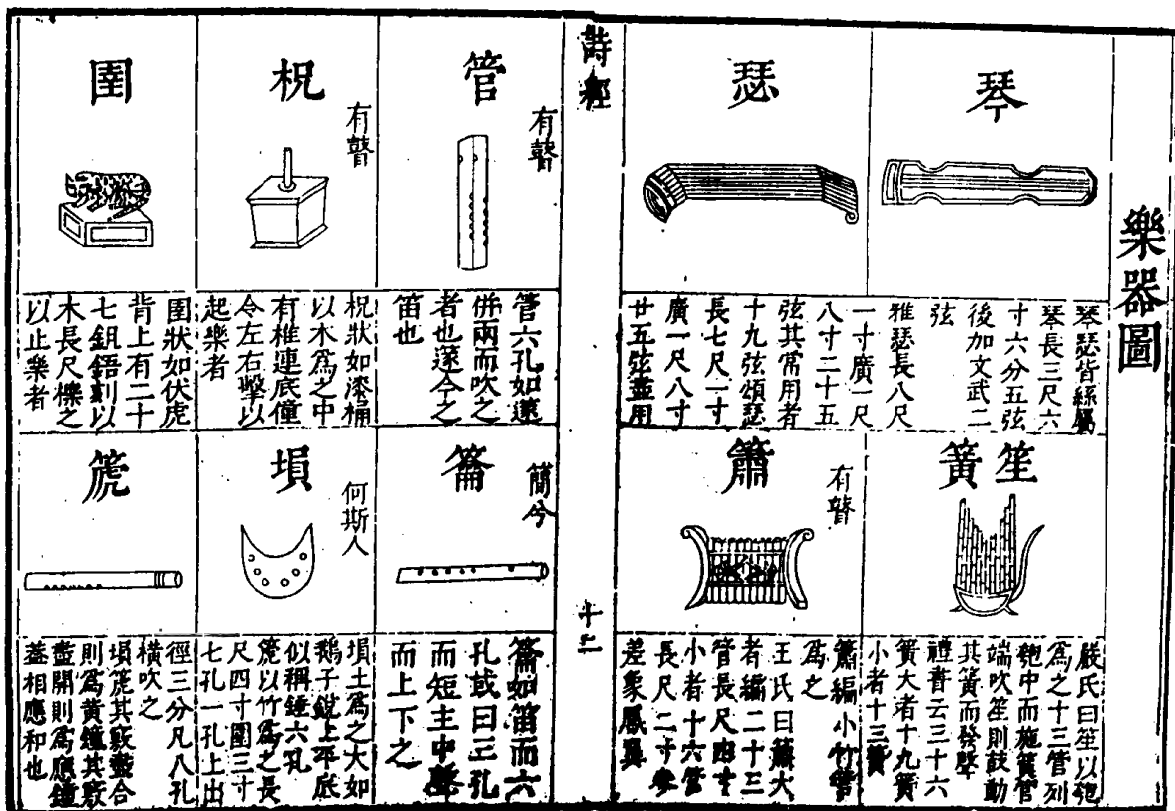 樂器圖
琴
琴瑟皆絲屬
琴長三尺六
寸六分五弦
後加文武二
弦
瑟
雅瑟長八尺
一寸廣一尺
八寸二十五
弦其常用者
十九弦頌瑟
長七尺一寸
廣一尺八寸
廿五弦盡用
笙簧
嚴氏曰笙以匏
為之十三管列
匏中而施簧管
端吹笙則鼓動
其簧而發聲
禮書云三十六
簧大者十九簧
小者十三簧
簫
有瞽
簫編小竹管
為之
王氏曰簫大
者編二十三
管長尺四寸
小者十六管
長尺二寸參
差象鳳翼
詩經
十二
管
有瞽
管六孔如篴
併兩而吹之
者也篴今之
笛也
柷
有瞽
柷狀如漆桶
以木為之中
有椎連底㨂
令左右擊以
起樂者
圉
圉狀如伏虎
背上有二十
七鉏鋙刻以
木長尺櫟之
以止樂者
籥
簡兮
籥如笛而六
孔或曰三孔
而短主中聲
而上下之
塤
何斯人
塤土為之大如
鵝子銳上平底
似稱錘六孔
篪
篪以竹為之長
尺四寸圍三寸
七孔一孔上出
徑三分凡八孔
橫吹之
塤篪其竅盡合
則為黃鐘其竅
盡開則為應鐘
蓋相應和也